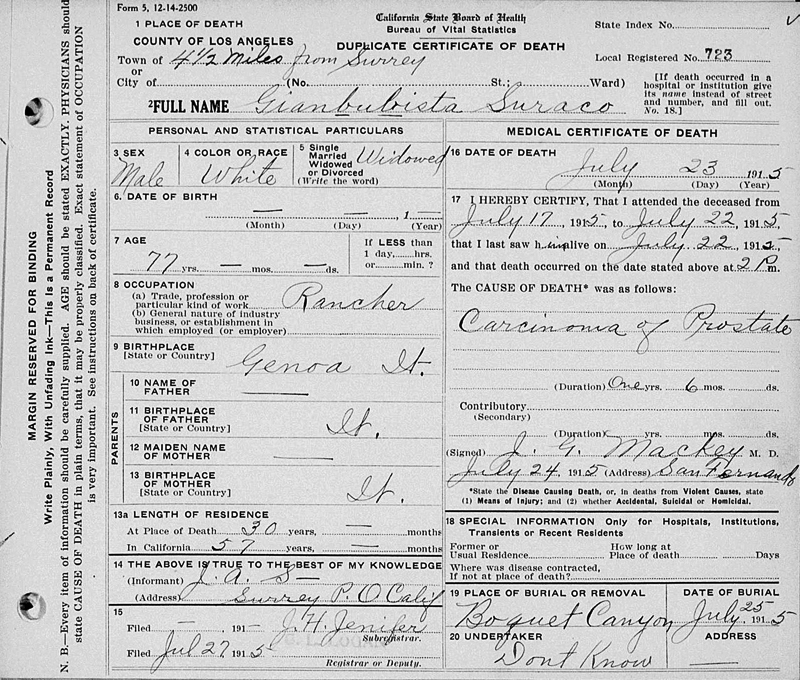 Form 5, 12-14-2500
California State Board of Health
Bureau of Vital Statistics
DUPLICATE CERTIFICATE OF DEATH
State Index No.
Local Registered No. 723
1 PLACE OF DEATH
COUNTY OF LOS ANGELES
Town of 4 1/2 Miles from Surrey
or
City of (No. St.; Ward)
[If death occurred in a
hospital or institution give
its name instead of street
and number, and fill out.
No. 18.]
2 FULL NAME Gianbuloista Suraco
MARGIN RESERVED FOR BINDING
Write Plainly, With Unfading Ink—This is a Permanent Record
N. B.—Every item of information should be carefully supplied. AGE should be stated EXACTLY. PHYSICIANS should
state CAUSE OF DEATH in plain terms, that it may be properly classified. Exact statement of OCCUPATION
is very important. See instructions on back of certificate.
PERSONAL AND STATISTICAL PARTICULARS
3 SEX
Male
4 COLOR OR RACE
White
5 Single
Married
Widowed
or Divorced
(Write the word)
Widowed
6. DATE OF BIRTH
— — 1
(Month) (Day) (Year)
7 AGE
77 yrs. — mos. — ds.
If LESS than
1 day, hrs.
or min. ?
8 OCCUPATION
(a) Trade, profession or
particular kind of work Rancher
(b) General nature of industry
business, or establishment in
which employed (or employer)
9 BIRTHPLACE
[State or Country] Genoa It.
PARENTS
10 NAME OF
FATHER —
11 BIRTHPLACE
OF FATHER
[State or Country] It.
12 MAIDEN NAME
OF MOTHER —
13 BIRTHPLACE
OF MOTHER
[State or Country] It.
13a LENGTH OF RESIDENCE
At Place of Death 30 years, — months
In California 57 years, — months
14 THE ABOVE IS TRUE TO THE BEST OF MY KNOWLEDGE
(Informant) J. A. S—
(Address) Surrey P.O Calif
15
Filed — 191- J. H. Jenifer
Subregistrar.
Filed Jul 27 1915
Registrar or Deputy.
MEDICAL CERTIFICATE OF DEATH
16 DATE OF DEATH
July 23 1915
(Month) (Day) (Year)
17 I HEREBY CERTIFY, That I attended the deceased from
July 17, 1915, to July 22, 1915,
that I last saw him alive on July 22 1915
and that death occurred on the date stated above at 2 P m.
The CAUSE OF DEATH* was as follows:
Carcinoma of Prostate
(Duration) One yrs. 6 mos. ds.
Contributory
(Secondary)
(Duration) yrs. mos. ds.
(Signed) J. G. Mackey M. D.
July 24, 1915 (Address) San Fernando
*State the Disease Causing Death, or, in deaths from Violent Causes, state
(1) Means of Injury; and (2) whether Accidental, Suicidal or Homicidal.
18 SPECIAL INFORMATION Only for Hospitals, Institutions,
Transients or Recent Residents
Former or
Usual Residence
How long at
Place of death Days
Where was disease contracted,
If not at place of death?
19 PLACE OF BURIAL OR REMOVAL
Boquet Canyon
DATE OF BURIAL
July 25 1915
20 UNDERTAKER
Dont Know
ADDRESS
—